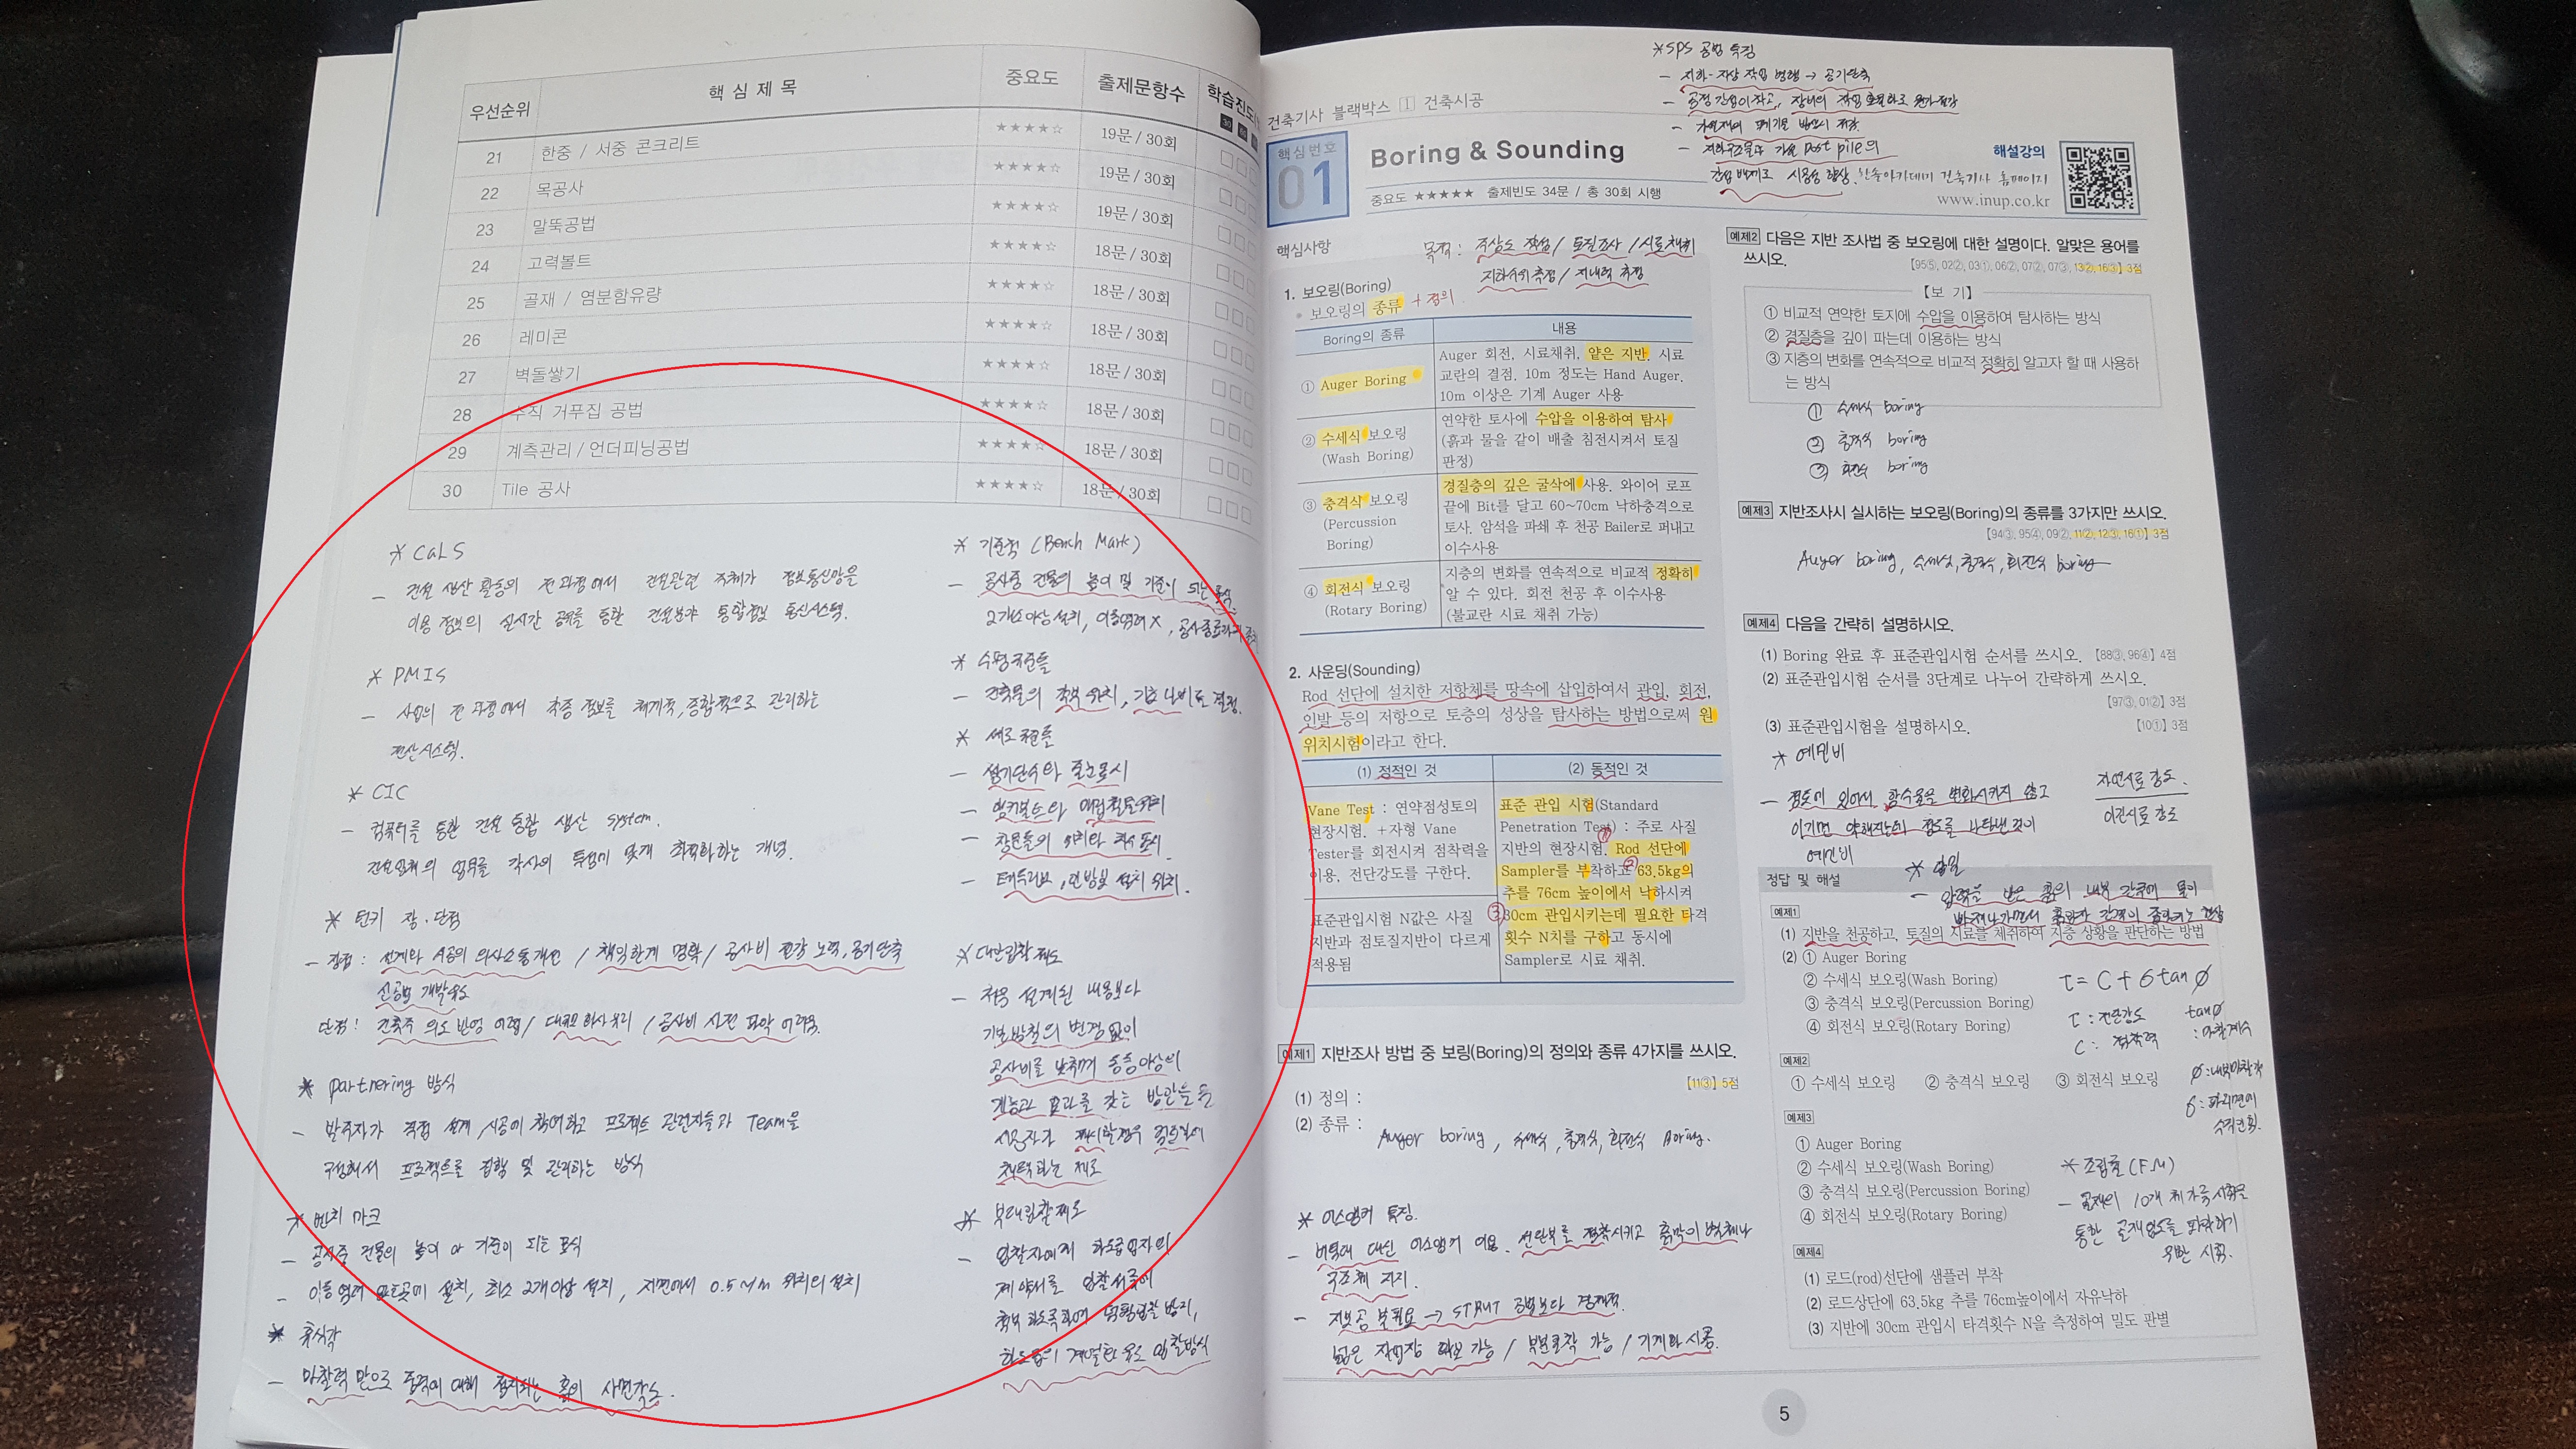 우선순위 핵심제목 중요도 출제문항수 학습진도
21 한중 / 서중 콘크리트 ★★★★☆ 19문 / 30회 □□□
22 목공사 ★★★★☆ 19문 / 30회 □□□
23 말뚝공법 ★★★★☆ 19문 / 30회 □□□
24 고력볼트 ★★★★☆ 18문 / 30회 □□□
25 골재 / 염분함유량 ★★★★☆ 18문 / 30회 □□□
26 레미콘 ★★★★☆ 18문 / 30회 □□□
27 벽돌쌓기 ★★★★☆ 18문 / 30회 □□□
28 수직 거푸집 공법 ★★★★☆ 18문 / 30회 □□□
29 계측관리 / 언더피닝공법 ★★★★☆ 18문 / 30회 □□□
30 Tile 공사 ★★★★☆ 18문 / 30회 □□□
* CALS
- 건설 생산 활동의 전 과정에서 건설관련 주체가 정보통신망을
이용 정보의 실시간 공유를 통한 건설분야 통합정보 통신시스템.
* PMIS
- 사업의 전 과정에서 각종 정보를 체계적, 종합적으로 관리하는
전산시스템.
* CIC
- 컴퓨터를 통한 건설 통합 생산 system.
건설업체의 업무를 각사의 특성에 맞게 최적화하는 개념.
* 턴키 장·단점
- 장점 : 설계와 시공의 의사소통개선 / 책임한계 명확 / 공사비 절감 노력, 공기단축
신공법 개발유도
단점 : 건축주 의도 반영 어렵 / 대규모 회사 유리 / 공사비 사전 파악 어려움.
* partnering 방식
- 발주자가 직접 설계, 시공에 참여하고 프로젝트 관련자들과 Team을
구성해서 프로젝트를 집행 및 관리하는 방식
* 벤치 마크
- 공사중 건물의 높이 의 기준이 되는 표식
- 이동 염려 없는곳에 설치, 최소 2개이상 설치, 지면에서 0.5~1m 위치의 설치
* 휴식각
- 마찰력 만으로 중력에 대해 정지되는 흙의 사면각도.
* 기준점 (Bench Mark)
- 공사중 건물의 높이 및 기준이 되는 표식.
2개소이상 설치, 이동염려X, 공사종료까지
* 수평규준틀
- 건축물의 각부 위치, 기초 너비를 결정.
* 세로규준틀
- 쌓기단수와 줄눈표시
- 앵커볼트와 매립철물위치
- 창문틀의 위치와 치수 표시.
- 테두리보, 인방보 설치 위치.
* 대안입찰제도
- 처음 설계된 내용보다
기본방침의 변경 없이
공사비를 낮추며 동등이상의
기능과 효과를 갖는 방안을
시공자가 제시할경우 검토후에
채택하는 제도
* 부대입찰제도
- 입찰자에게 하도급업자의
계약서를 입찰서류에
첨부 하도록하여 덤핑입찰 방지,
하도급의 계열화 유도 입찰방식
* SPS 공법 특징
- 지하·지상 작업 병행 → 공기단축
- 공정 간섭이 적고, 장비의 작업 효율화로 원가절감
- 가설재의 폐기물 발생이 저감.
- 지하구조물과 가설 post pile의
간섭 배제로 시공성 향상.
건축기사 블랙박스 Ⅰ 건축시공
핵심번호
01
Boring & Sounding
중요도 ★★★★★ 출제빈도 34문 / 총 30회 시행
해설강의
한솔아카데미 건축기사 홈페이지
www.inup.co.kr
핵심사항
목적 : 주상도 작성 / 토질조사 / 시료채취
지하수위 측정 / 지내력 측정
1. 보오링(Boring)
• 보오링의 종류 + 정의.
Boring의 종류 내용
① Auger Boring
Auger 회전, 시료채취, 얕은 지반, 시료
교란의 결점. 10m 정도는 Hand Auger.
10m 이상은 기계 Auger 사용
② 수세식 보오링
(Wash Boring)
연약한 토사에 수압을 이용하여 탐사
(흙과 물을 같이 배출 침전시켜서 토질
판정)
③ 충격식 보오링
(Percussion
Boring)
경질층의 깊은 굴삭에 사용. 와이어 로프
끝에 Bit를 달고 60~70cm 낙하충격으로
토사, 암석을 파쇄 후 천공 Bailer로 퍼내고
이수사용
④ 회전식 보오링
(Rotary Boring)
지층의 변화를 연속적으로 비교적 정확히
알 수 있다. 회전 천공 후 이수사용
(불교란 시료 채취 가능)
2. 사운딩(Sounding)
Rod 선단에 설치한 저항체를 땅속에 삽입하여서 관입, 회전,
인발 등의 저항으로 토층의 성상을 탐사하는 방법으로써 원
위치시험이라고 한다.
(1) 정적인 것 (2) 동적인 것
Vane Test : 연약점성토의
현장시험. +자형 Vane
Tester를 회전시켜 점착력을
이용, 전단강도를 구한다.
표준관입시험 N값은 사질
지반과 점토질지반이 다르게
적용됨
표준 관입 시험(Standard
Penetration Test) : 주로 사질
지반의 현장시험. Rod 선단에
Sampler를 부착하고 63.5kg의
추를 76cm 높이에서 낙하시켜
30cm 관입시키는데 필요한 타격
횟수 N치를 구하고 동시에
Sampler로 시료 채취.
① ② ③
예제1 지반조사 방법 중 보링(Boring)의 정의와 종류 4가지를 쓰시오.
【11③】 5점
(1) 정의 :
(2) 종류 : Auger boring, 수세식, 충격식, 회전식 Boring.
* 어스앵커 특징.
- 버팀대 대신 어스앵커 이용. 선단부를 정착시키고 흙막이 벽체나
구조체 지지.
- 지보공 불필요 → STRUT 공법보다 경제적.
넓은 작업장 확보 가능 / 부분굴착 가능 / 기계화 시공.
예제2 다음은 지반 조사법 중 보오링에 대한 설명이다. 알맞은 용어를
쓰시오.
【95⑤, 02②, 03①, 06②, 07②, 07③, 13②, 16③】 3점
【보 기】
① 비교적 연약한 토지에 수압을 이용하여 탐사하는 방식
② 경질층을 깊이 파는데 이용하는 방식
③ 지층의 변화를 연속적으로 비교적 정확히 알고자 할 때 사용하
는 방식
① 수세식 boring
② 충격식 boring
③ 회전식 boring
예제3 지반조사시 실시하는 보오링(Boring)의 종류를 3가지만 쓰시오.
【94③, 95④, 09②, 11②, 12③, 16①】 3점
Auger boring, 수세식, 충격식, 회전식 boring
예제4 다음을 간략히 설명하시오.
(1) Boring 완료 후 표준관입시험 순서를 쓰시오. 【88③, 96④】 4점
(2) 표준관입시험 순서를 3단계로 나누어 간략하게 쓰시오.
【97③, 01②】 3점
(3) 표준관입시험을 설명하시오. 【10①】 3점
* 예민비
- 점토에 있어서 함수율을 변화시키지 않고
이기면 약해지는데 정도를 나타낸 것이
예민비
자연시료 강도.
이긴시료 강도
* 압밀
- 압력을 받은 흙의 내부 간극에 물이
빠져나가면서 흙입자 간격이 좁아지는 현상
정답 및 해설
예제1
(1) 지반을 천공하고, 토질의 시료를 채취하여 지층 상황을 판단하는 방법
(2) ① Auger Boring
② 수세식 보오링(Wash Boring)
③ 충격식 보오링(Percussion Boring)
④ 회전식 보오링(Rotary Boring)
τ = C + σ tan ∅
τ : 전단강도
C : 점착력
tan∅
: 마찰계수
∅ : 내부마찰각
σ : 파괴면에
수직인 힘.
예제2
① 수세식 보오링 ② 충격식 보오링 ③ 회전식 보오링
예제3
① Auger Boring
② 수세식 보오링(Wash Boring)
③ 충격식 보오링(Percussion Boring)
④ 회전식 보오링(Rotary Boring)
* 조립률 (F.M)
- 골재의 10개 체가름 시험을
통한 골재입도를 파악하기
위한 시험.
예제4
(1) 로드(rod)선단에 샘플러 부착
(2) 로드상단에 63.5kg 추를 76cm높이에서 자유낙하
(3) 지반에 30cm 관입시 타격횟수 N을 측정하여 밀도 판별
5